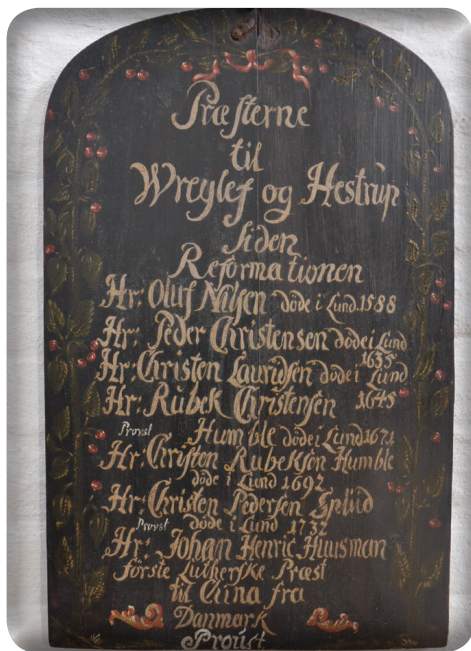 Præsterne
til
Wreylef og Hestrup
siden
Reformationen
Hr: Oluf Nilsen döde i Lund. 1588
Hr: Peder Christensen döde i Lund
1635
Hr: Christen Lauridsen döde i Lund
Hr: Rubek Christensen 1645
Provst Humble döde i Lund 1671
Hr: Christen Rubeksön Humble
döde i Lund 1692
Hr: Christen Pedersen
Provst döde i Lund 1732
Hr: Johan Henric Huusman
förste Lutherske Præst
til Cina fra
Danmark
Proust